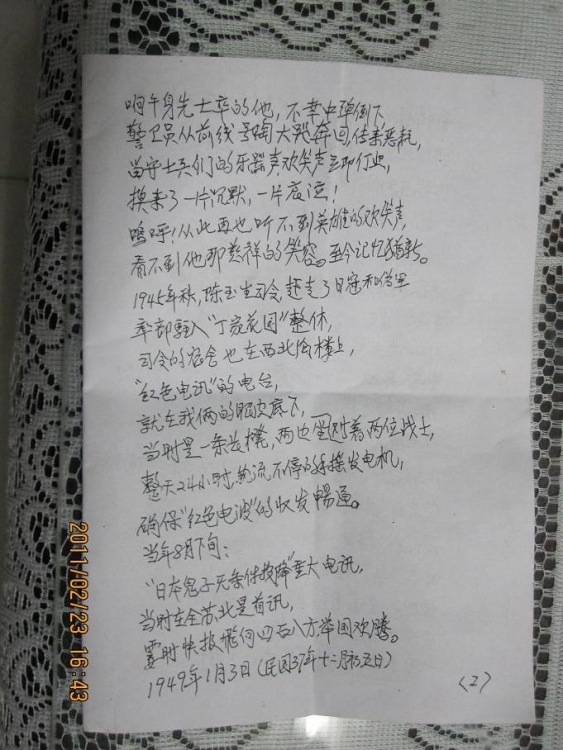 晌午身先士卒的他，不幸中弹倒下
警卫员从前线号啕大哭奔回，传来恶耗，
留守士兵们的乐器声欢笑声立即停止，
换来了一片沉默，一片哀泣！
呜呼！从此再也听不到英雄的欢笑声，
看不到他那慈祥的笑容。至今记忆犹新。
1945年秋，陈玉生司令，赶走了日寇和伪军
率部驻入"丁家花园"整休，
司令的宿舍也在西北角楼上，
"红色电讯"的电台，
就在我俩的眼皮底下，
当时是一条长櫈，两边坐对着两位战士，
整天24小时轮流不停的手摇发电机，
确保"红色电波"的收发畅通。
当年8月下旬：
"日本鬼子无条件投降"重大电讯，
当时在全苏北是首讯，
霎时快报飞向四面八方，举国欢腾。
1949年1月3日（民国37年十二月初五日）
〈2〉
2011/02/23 16:43